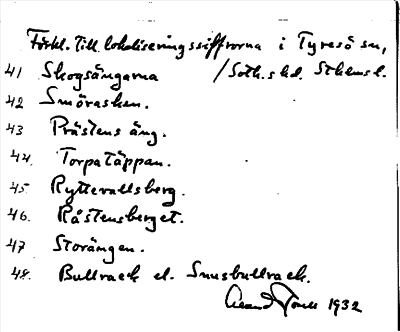 Förkl. till lokaliseringssiffrorna i Tyresö sn,
41 Skogsängarna /Soth.s hd. Sthlms l.
42 Smörasken.
43 Prästens äng.
44. Torpatäppan.
45 Ryttervallsberg.
46. Råstensberget.
47 Storängen.
48. Bullrack el. Snusbullrack.
1932